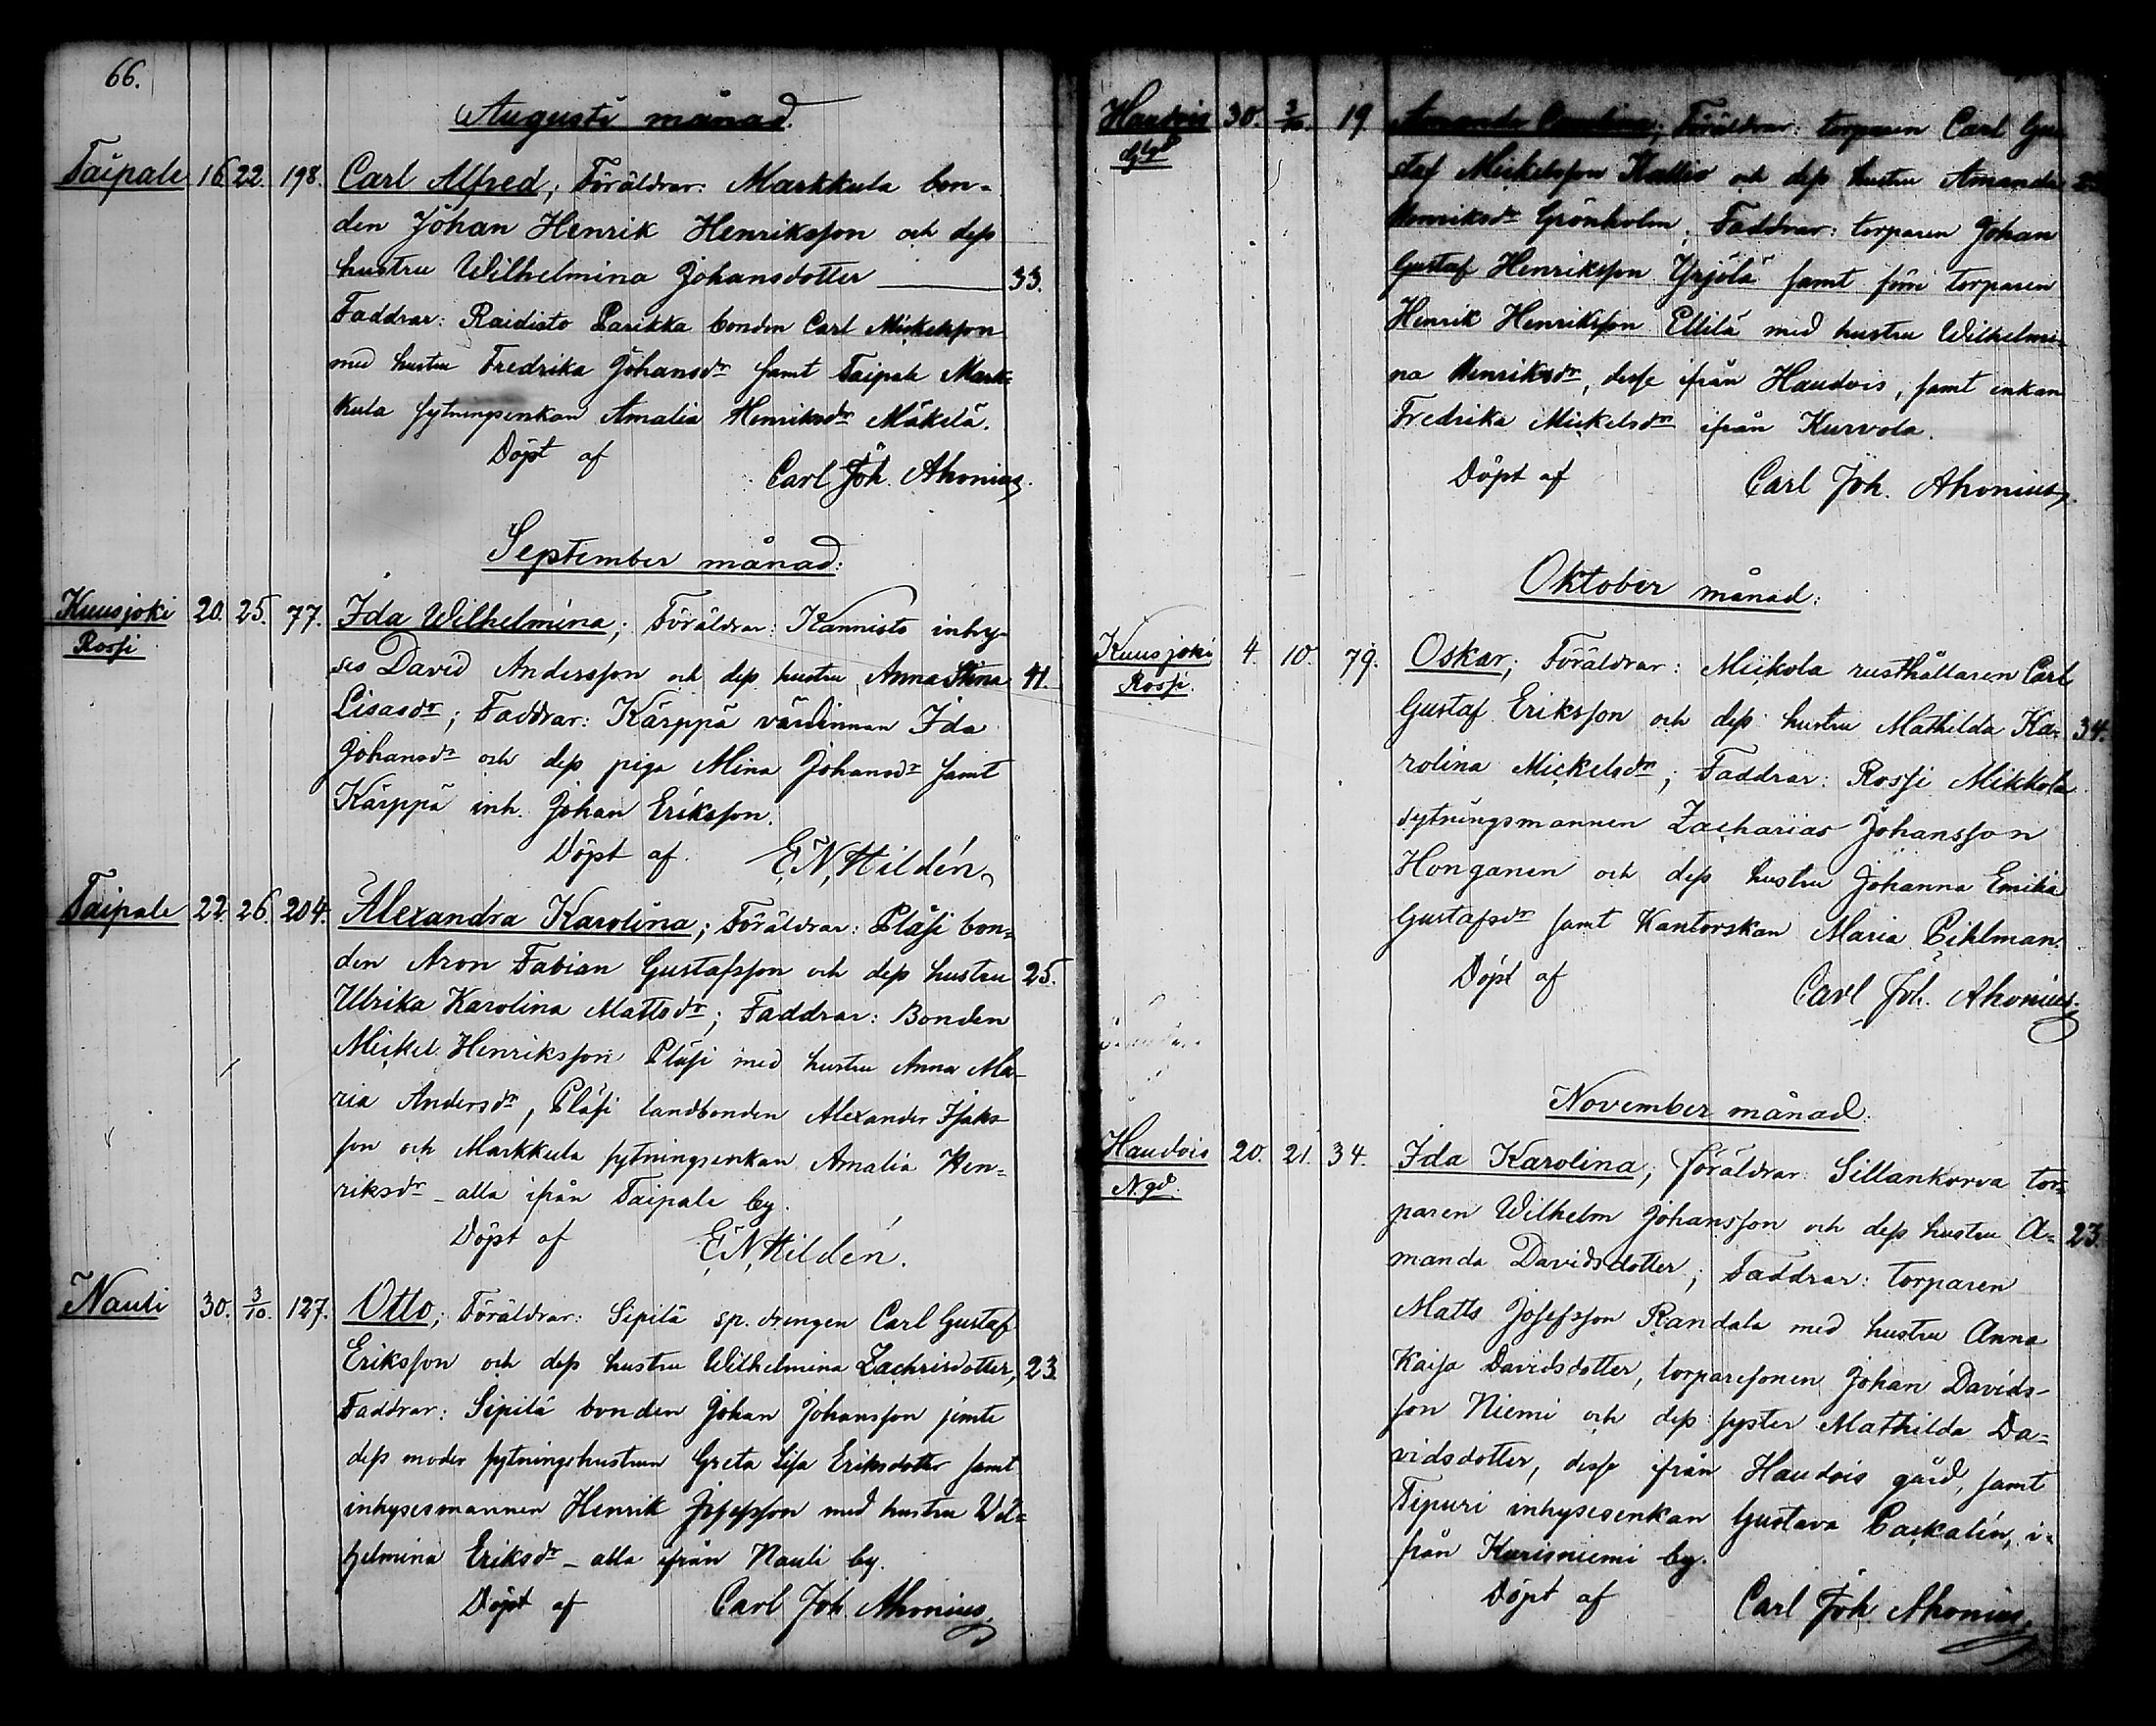 66.
Augusti månad.
Taipale 16. 22. 198. Carl Alfred; Föräldrar: Markkula bon-
den Johan Henrik Henriksson och dess
hustru Wilhelmina Johansdotter 33.
Faddrar: Raidisto Parikka bonden Carl Mickelsson
med hustru Fredrika Johansdr samt Taipale Mark-
kula sytningsenkan Amalia Henriksdr Mäkelä.
Döpt af Carl Joh. Ahonius.
September månad:
Kuusjoki 20. 25. 77. Ida Wilhelmina; Föräldrar: Kannisto inhy-
Rossi
ses David Andersson och dess hustru Anna Stina 41.
Lisasdr; Faddrar: Kärppä värdinnan Ida
Johansdr och dess piga Mina Johansdr samt
Kärppä inh. Johan Eriksson.
Döpt af E.N. Hildén.
Taipale 22. 26. 204. Alexandra Karolina; Föräldrar: Pläsi bon-
den Aron Fabian Gustafsson och dess hustru 25.
Ulrika Karolina Mattsdr; Faddrar: Bonden
Mickel Henriksson Pläsi med hustru Anna Ma-
ria Andersdr, Pläsi landbonden Alexander Isaks-
son och Markkula sytningsenkan Amalia Hen-
riksdr - alla ifrån Taipale by.
Döpt af E.N. Hildén.
Nauti 30. 3/10. 127. Otto; Föräldrar: Sipilä sp. drengen Carl Gustaf
Eriksson och dess hustru Wilhelmina Zachrisdotter, 23.
Faddrar: Sipilä bonden Johan Johansson jemte
dess moder sytningshustrun Greta Lisa Eriksdotter samt
inhysesmannen Henrik Josefsson med hustru Wil-
helmina Eriksdr - alla ifrån Nauti by.
Döpt af Carl Joh. Ahonius.
Haudois 30. 3/10. 19 Amanda Carolina; Föräldrar: torparen Carl Gu-
staf Mickelsson Kallio och dess hustru Amanda
Henriksdr Grönholm; Faddrar: torparen Johan
Gustaf Henriksson Yrjölä samt förre torparen
Henrik Henriksson Ellilä med hustru Wilhelmi-
na Henriksdr, desse ifrån Haudois, samt enkan
Fredrika Mickelsdr ifrån Kurvola.
Döpt af Carl Joh. Ahonius.
Oktober månad:
Kuusjoki 4. 10. 79. Oskar; Föräldrar: Mikola rusthållaren Carl
Rossi.
Gustaf Eriksson och dess hustru Mathilda Ka- 34.
rolina Mickelsdr; Faddrar: Rossi Mikkola
sytningsmannen Zacharias Johansson
Honganen och dess hustru Johanna Emilia
Gustafsdr samt Kantorskan Maria Pihlman.
Döpt af Carl Joh. Ahonius.
November månad.
Haudois 20. 21. 34. Ida Karolina; föräldrar: Sillankorva tor-
N.gd.
paren Wilhelm Johansson och dess hustru A- 23.
manda Davidsdotter; Faddrar: torparen
Matts Josefsson Randala med hustru Anna
Kaisa Davidsdotter, torparesonen Johan Davids-
son Niemi och dess syster Mathilda Da-
vidsdotter, desse ifrån Haudois gård, samt
Tipuri inhysesenkan Gustava Packalén, i-
från Karisniemi by.
Döpt af Carl Joh. Ahonius.